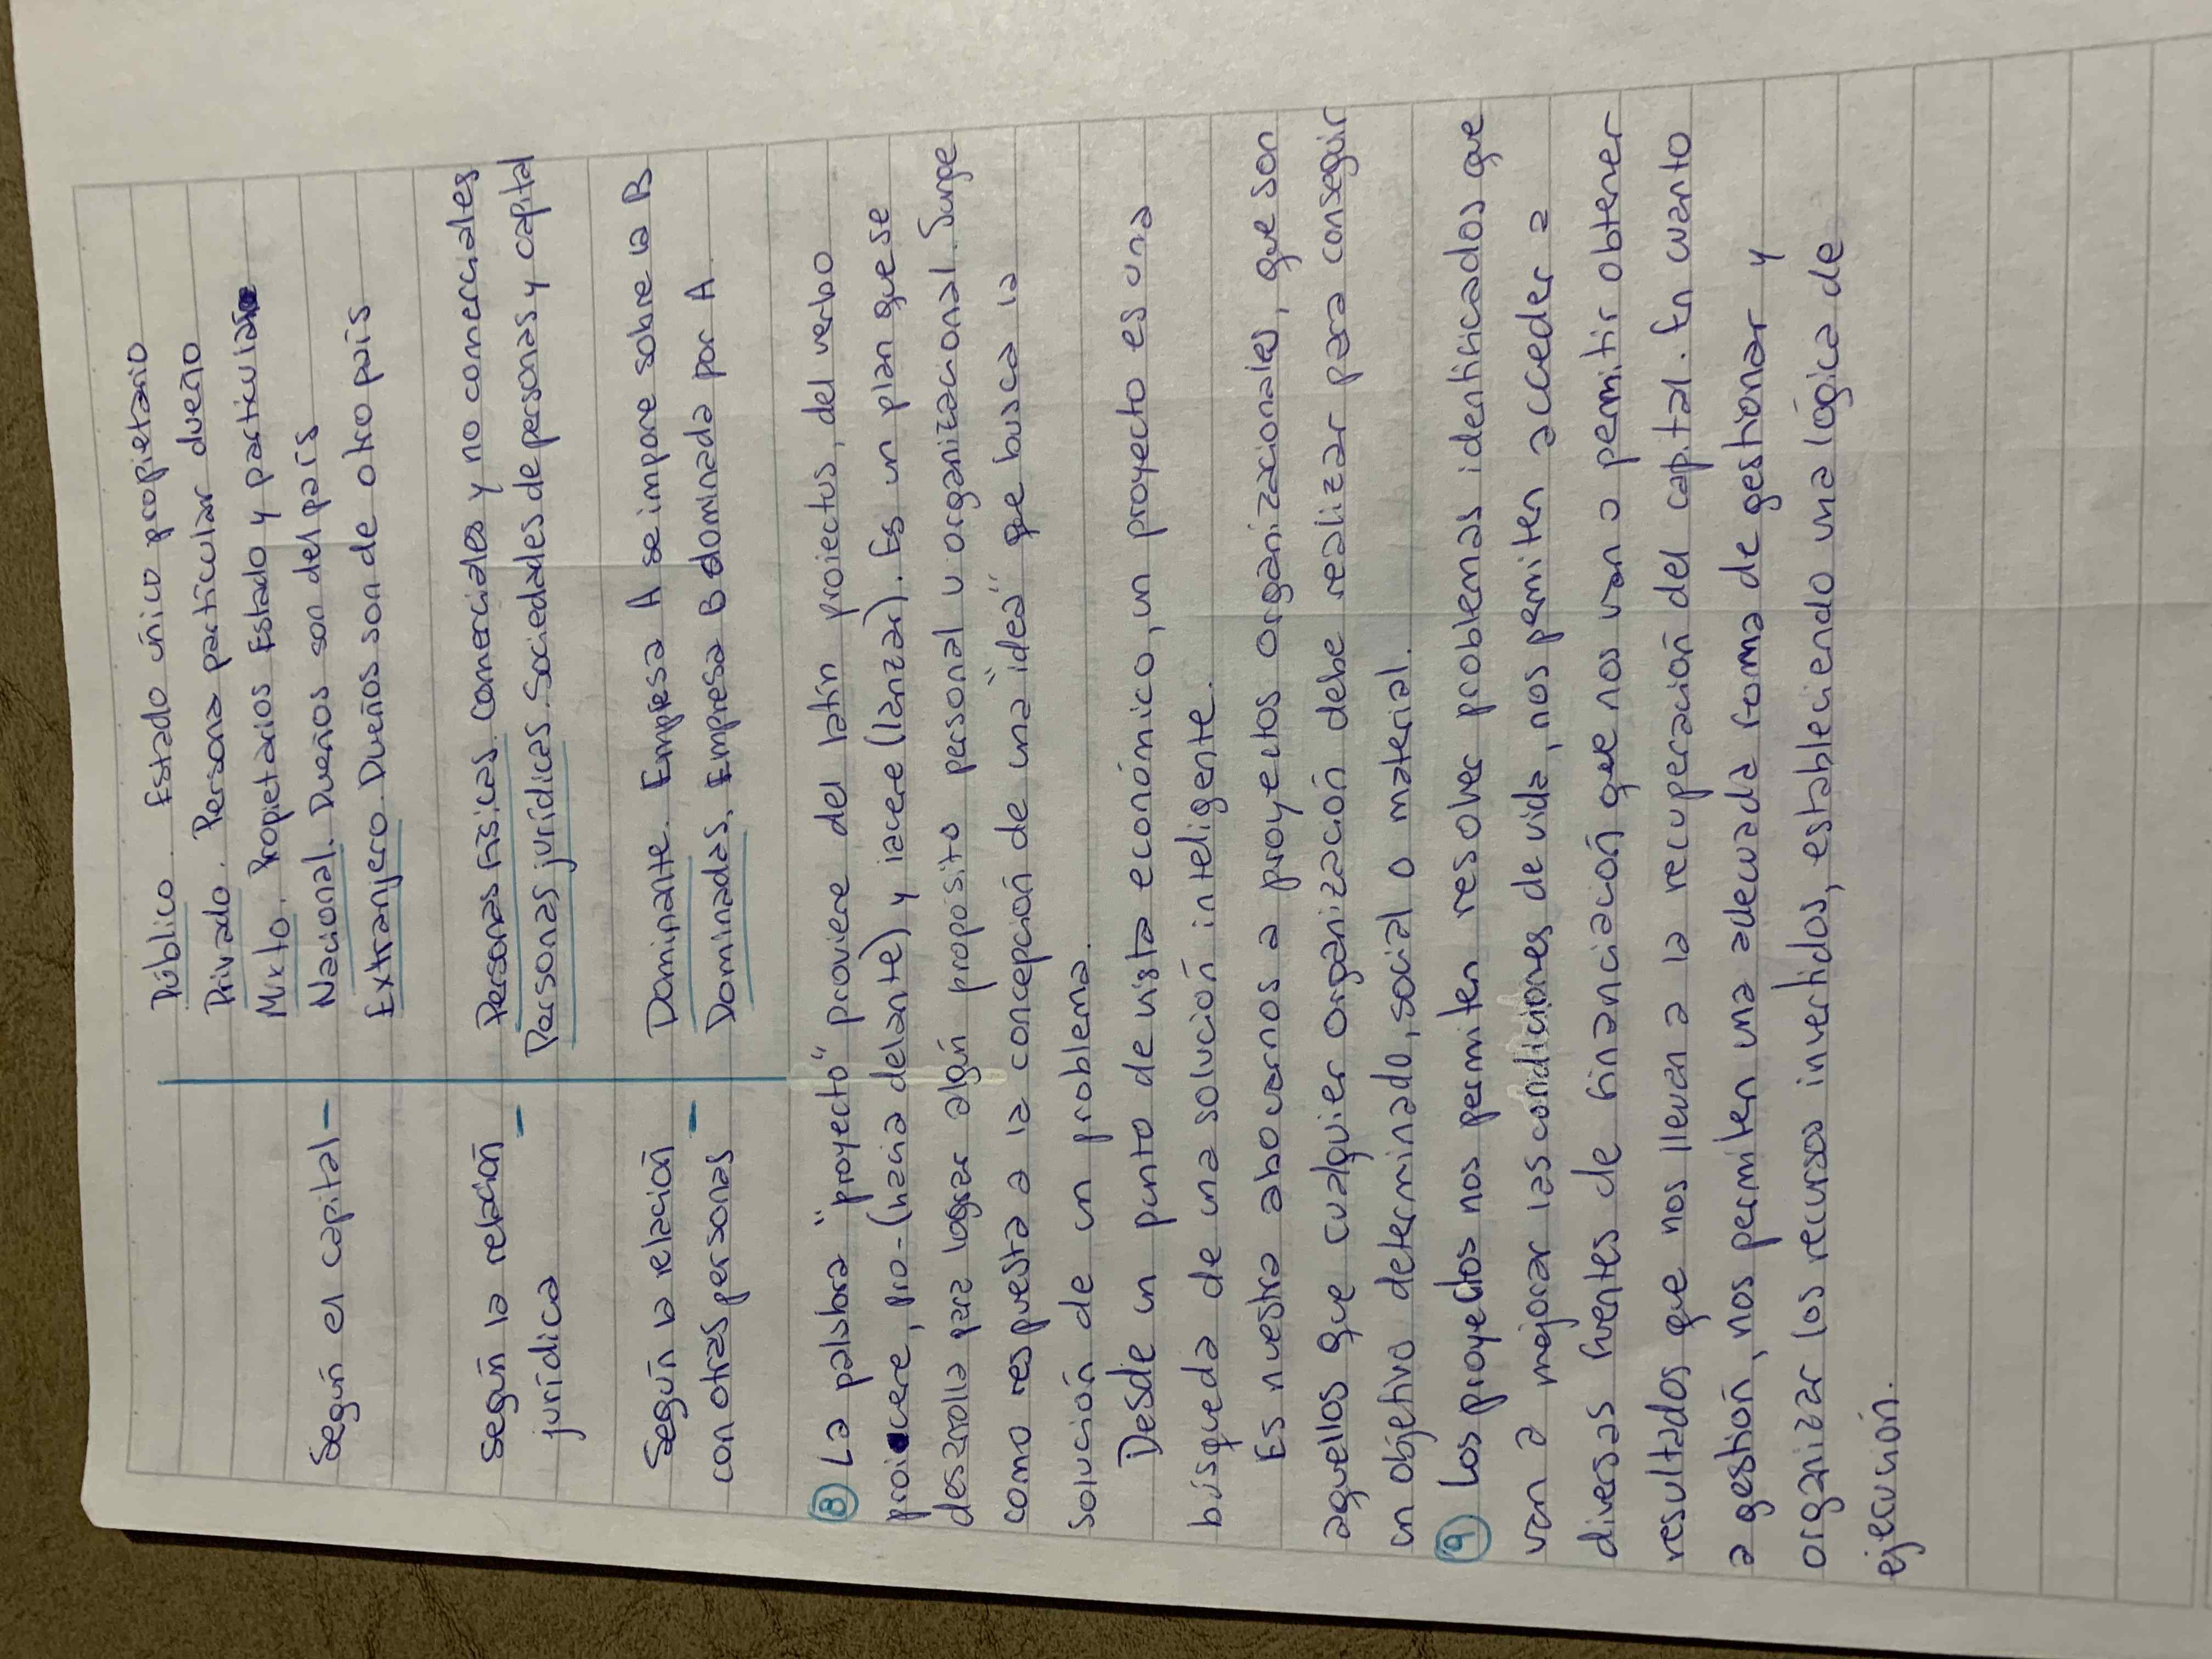 Público. Estado único propietario
Privado. Persona particular dueño
Mixto. Propietarios Estado y particular
Según el capital - Nacional. Dueños son del país
Extranjero. Dueños son de otro país
Según la relación - Personas físicas. Comerciales y no comerciales
jurídica Personas jurídicas. Sociedades de personas y capital
Según la relación - Dominante. Empresa A se impone sobre la B
con otras personas Dominadas. Empresa B dominada por A.
8 La palabra "proyecto" proviene del latín proiectus, del verbo
proicere, pro- (hacia delante) y iacere (lanzar). Es un plan que se
desarrolla para lograr algún proposito personal u organizacional. Surge
como respuesta a la concepción de una "idea" que busca la
solución de un problema.
Desde un punto de vista económico, un proyecto es una
búsqueda de una solución inteligente.
Es nuestra abocarnos a proyectos organizacionales, que son
aquellos que cualquier organización debe realizar para conseguir
un objetivo determinado, social o material.
9 Los proyectos nos permiten resolver problemas identificados que
van a mejorar las condiciones de vida, nos permiten acceder a
diversas fuentes de financiación que nos van a permitir obtener
resultados que nos llevan a la recuperación del capital. En cuanto
a gestión, nos permiten una adecuada forma de gestionar y
organizar los recursos invertidos, estableciendo una lógica de
ejecución.